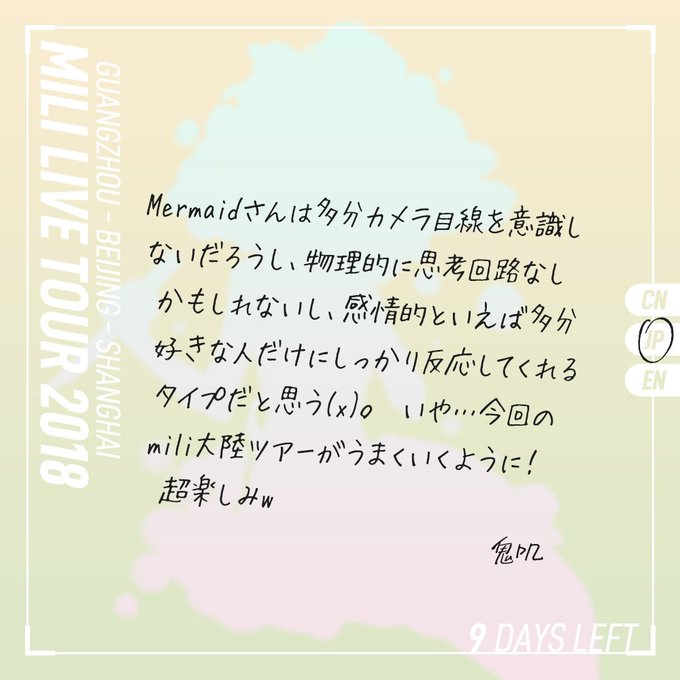 MILI LIVE TOUR 2018
GUANGZHOU - BEIJING - SHANGHAI
Mermaidさんは多分カメラ目線を意識し
ないだろうし、物理的に思考回路なし
かもしれないし、感情的といえば多分
好きな人だけにしっかり反応してくれる
タイプだと思う(x)。 いや…今回の
mili大陸ツアーがうまくいくように!
超楽しみw
鬼叽
CN
JP
EN
9 DAYS LEFT